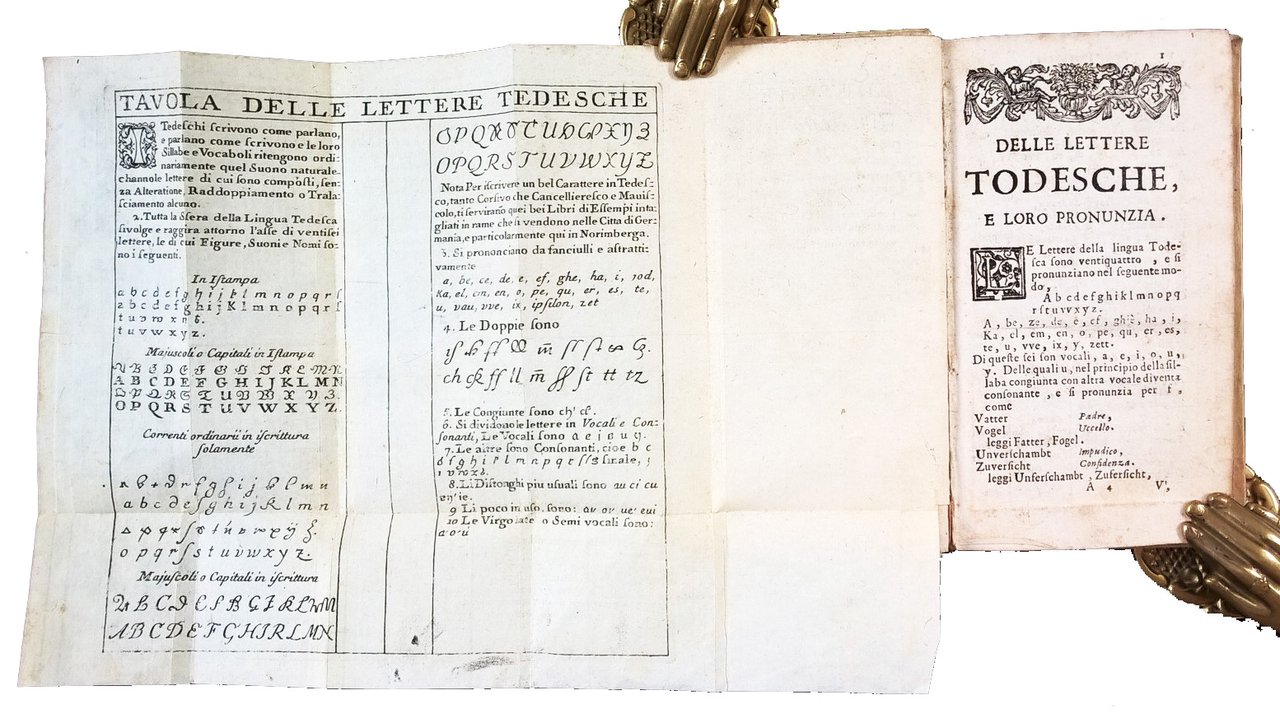 TAVOLA DELLE LETTERE TEDESCHE
I Tedeschi scrivono come parlano,
e parlano come scrivono e le loro
Sillabe e Vocaboli ritengono ordi:
nariamente quel Suono naturale
channo le lettere di cui sono composti, sen:
za Alteratione, Raddoppiamento o Trala:
sciamento alcuno.
2. Tutta la Sfera della Lingua Tedesca
si volge e raggira attorno l'asse di ventisei
lettere, le di cui Figure, Suoni e Nomi so:
no i seguenti.
In Istampa
a b c d e f g h i j k l m n o p q r ſ
a b c d e f g h i j K l m n o p q r ſ
t u v w x y z.
t u v w x y z.
Majuscoli o Capitali in Istampa
A B C D E F G H I J K L M N
A B C D E F G H I J K L M N
O P Q R S T U V W X Y Z.
O P Q R S T U V W X Y Z.
Correnti ordinarii in iscrittura
solamente
a b c d e f g h i j k l m n
a b c d e f g h i j k l m n
o p q r ſ s t u v w x y z.
o p q r ſ s t u v w x y z.
Majuscoli o Capitali in iscrittura
A B C D E F G H I K L M N
A B C D E F G H I K L M N
O P Q R S T U V W X Y Z
O P Q R S T U V W X Y Z
Nota Per iscrivere un bel Carattere in Tedes:
co, tanto Corsivo che Cancelleresco e Maiis:
colo, ti servirano quei bei Libri di Essempi inta:
gliati in rame che si vendono nelle Citta di Ger:
mania, e particolarmente qui in Norimberga.
3. Si prononciano da fanciulli e astratti:
vamente
a, be, ce, de, e, ef, ghe, ha, i, jod,
Ka, el, em, en, o, pe, qu, er, es, te,
u, vau, vve, ix, ipsilon, zet
4. Le Doppie sono
ch ck ff ll m̃ ſſ ſt tt tz
5. Le Congiante sono ch, ck.
6. Si dividono le lettere in Vocali e Con:
sonanti, Le Vocali sono a e i o u y.
7. Le altre sono Consonanti, cioe b c
d f g h j k l m n p q r ſ s finale,
t v w x z.
8. Li Distonghi piu usuali sono au ei eu
ey ie.
9 Li poco in uso, sono:
10 Le Virgolate o Semi vocali sono:
1
DELLE LETTERE
TODESCHE,
E LORO PRONUNZIA.
LE Lettere della lingua Tode-
sca sono ventiquattro, e si
pronunziano nel seguente mo-
do,
A b c d e f g h i k l m n o p q
r s t u v x y z.
A, be, ze, de, e, ef, ghe, ha, i,
Ka, el, em, en, o, pe, qu, er, es,
te, u, vve, ix, y, zett.
Di queste sei son vocali, a, e, i, o, u,
y. Delle quali u, nel principio della sil-
laba congiunta con altra vocale diventa
consonante, e si pronunzia per f,
come
Vatter Padre,
Vogel Uccello.
leggi Fatter, Fogel.
Unverschambt Impudico,
Zuversicht Confidenza.
leggi Unferschambt, Zufersicht,
A 4 V,